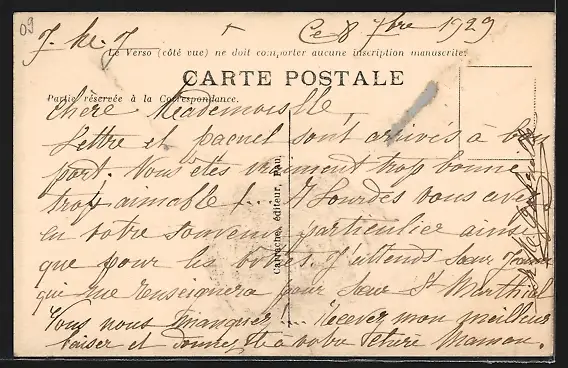 09
J. M. J.
Ce 8 7bre 1929
Le Verso (côté vue) ne doit comporter aucune inscription manuscrite.
CARTE POSTALE
Partie réservée à la Correspondance.
Chère Mademoiselle
Lettre et paquet sont arrivés à bon
port. Vous êtes vraiment trop bonne
trop aimable !... A Lourdes vous avez
eu votre souvenir particulier ainsi
que pour les vôtres. J'attends sœur
qui me renseignera pour sœur St Marthial
Vous nous manquez ... Recevez mon meilleur
baiser et donnez à votre Maman.
Carrache, éditeur, Pau.